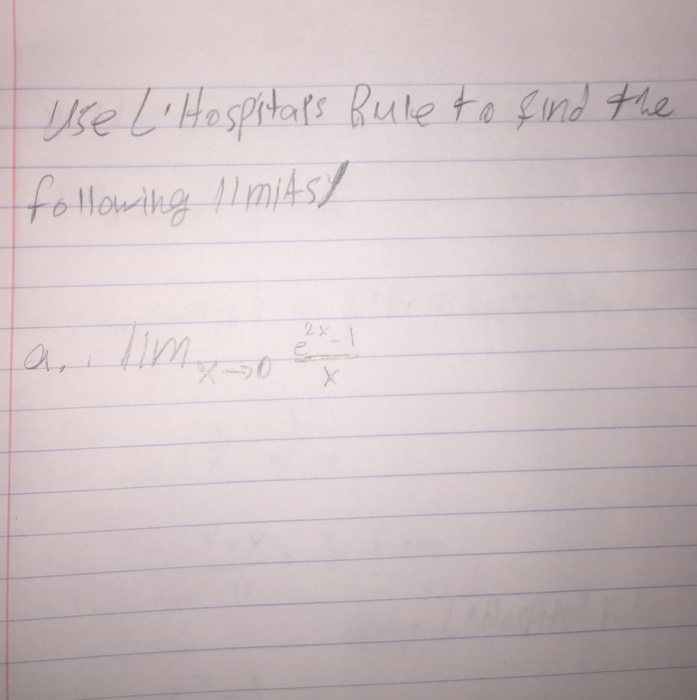 Use L'Hospital's Rule to find the
following limits/
a. lim x→0 e^2x-1/x